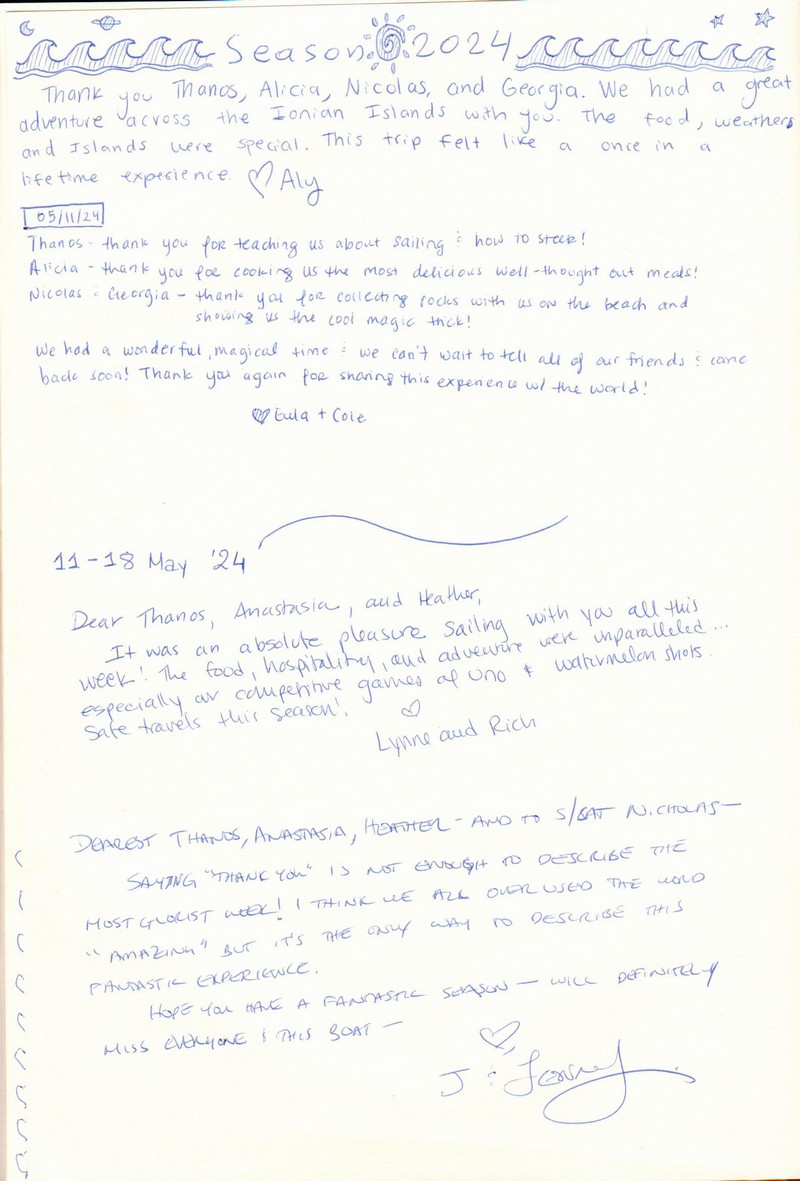 Season 2024
Thank you Thanos, Alicia, Nicolas, and Georgia. We had a great
adventure across the Ionian Islands with you. The food, weathers
and Islands were special. This trip felt like a once in a
lifetime experience. ♡ Aly
05/11/24
Thanos - thank you for teaching us about sailing & how to steer!
Alicia - thank you for cooking us the most delicious well-thought out meals!
Nicolas & Georgia - thank you for collecting rocks with us on the beach and
showing us the cool magic trick!
We had a wonderful, magical time & we can't wait to tell all of our friends & come
back soon! Thank you again for sharing this experience w/ the world!
♡ Eula + Cole
11-18 May '24
Dear Thanos, Anastasia, and Heather,
It was an absolute pleasure sailing with you all this
week! The food, hospitality, and adventure were unparalleled...
especially our competitive games of Uno & watermelon shots.
Safe travels this season!
♡
Lynne and Rich
DEAREST THANOS, ANASTASIA, HEATHER - AND TO S/CAT NICHOLAS -
SAYING "THANK YOU" IS NOT ENOUGH TO DESCRIBE THE
MOST GLORIST WEEK! I THINK WE ALL OVER USED THE WORD
"AMAZING" BUT IT'S THE ONLY WAY TO DESCRIBE THIS
FANTASTIC EXPERIENCE.
HOPE YOU HAVE A FANTASTIC SEASON - WILL DEFINITELY
MISS EVERYONE & THIS BOAT -
♡,
J &